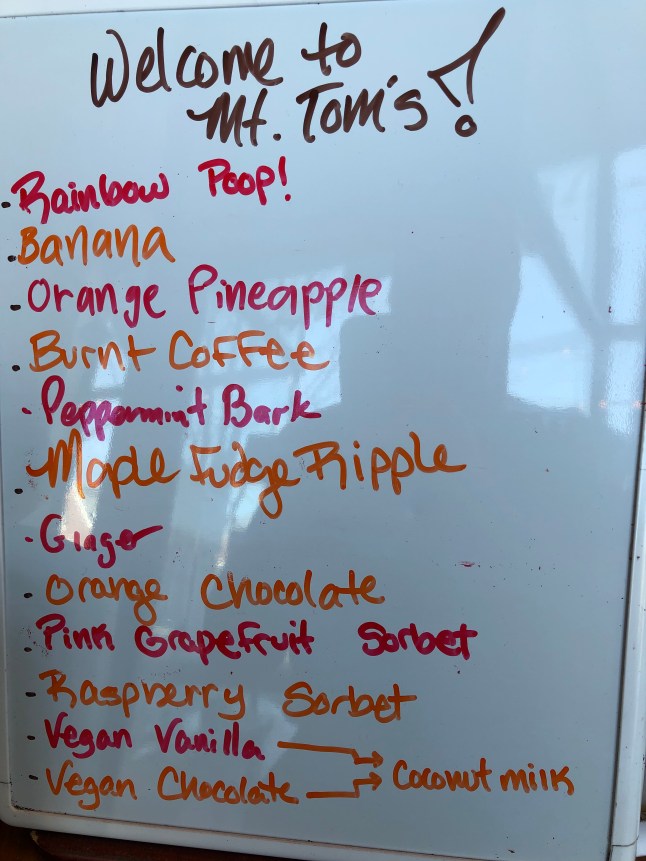 Welcome to
Mt. Tom's!
• Rainbow Poop!
• Banana
• Orange Pineapple
• Burnt Coffee
• Peppermint Bark
• Maple Fudge Ripple
• Ginger
• Orange Chocolate
• Pink Grapefruit Sorbet
• Raspberry Sorbet
• Vegan Vanilla → Coconut milk
• Vegan Chocolate →